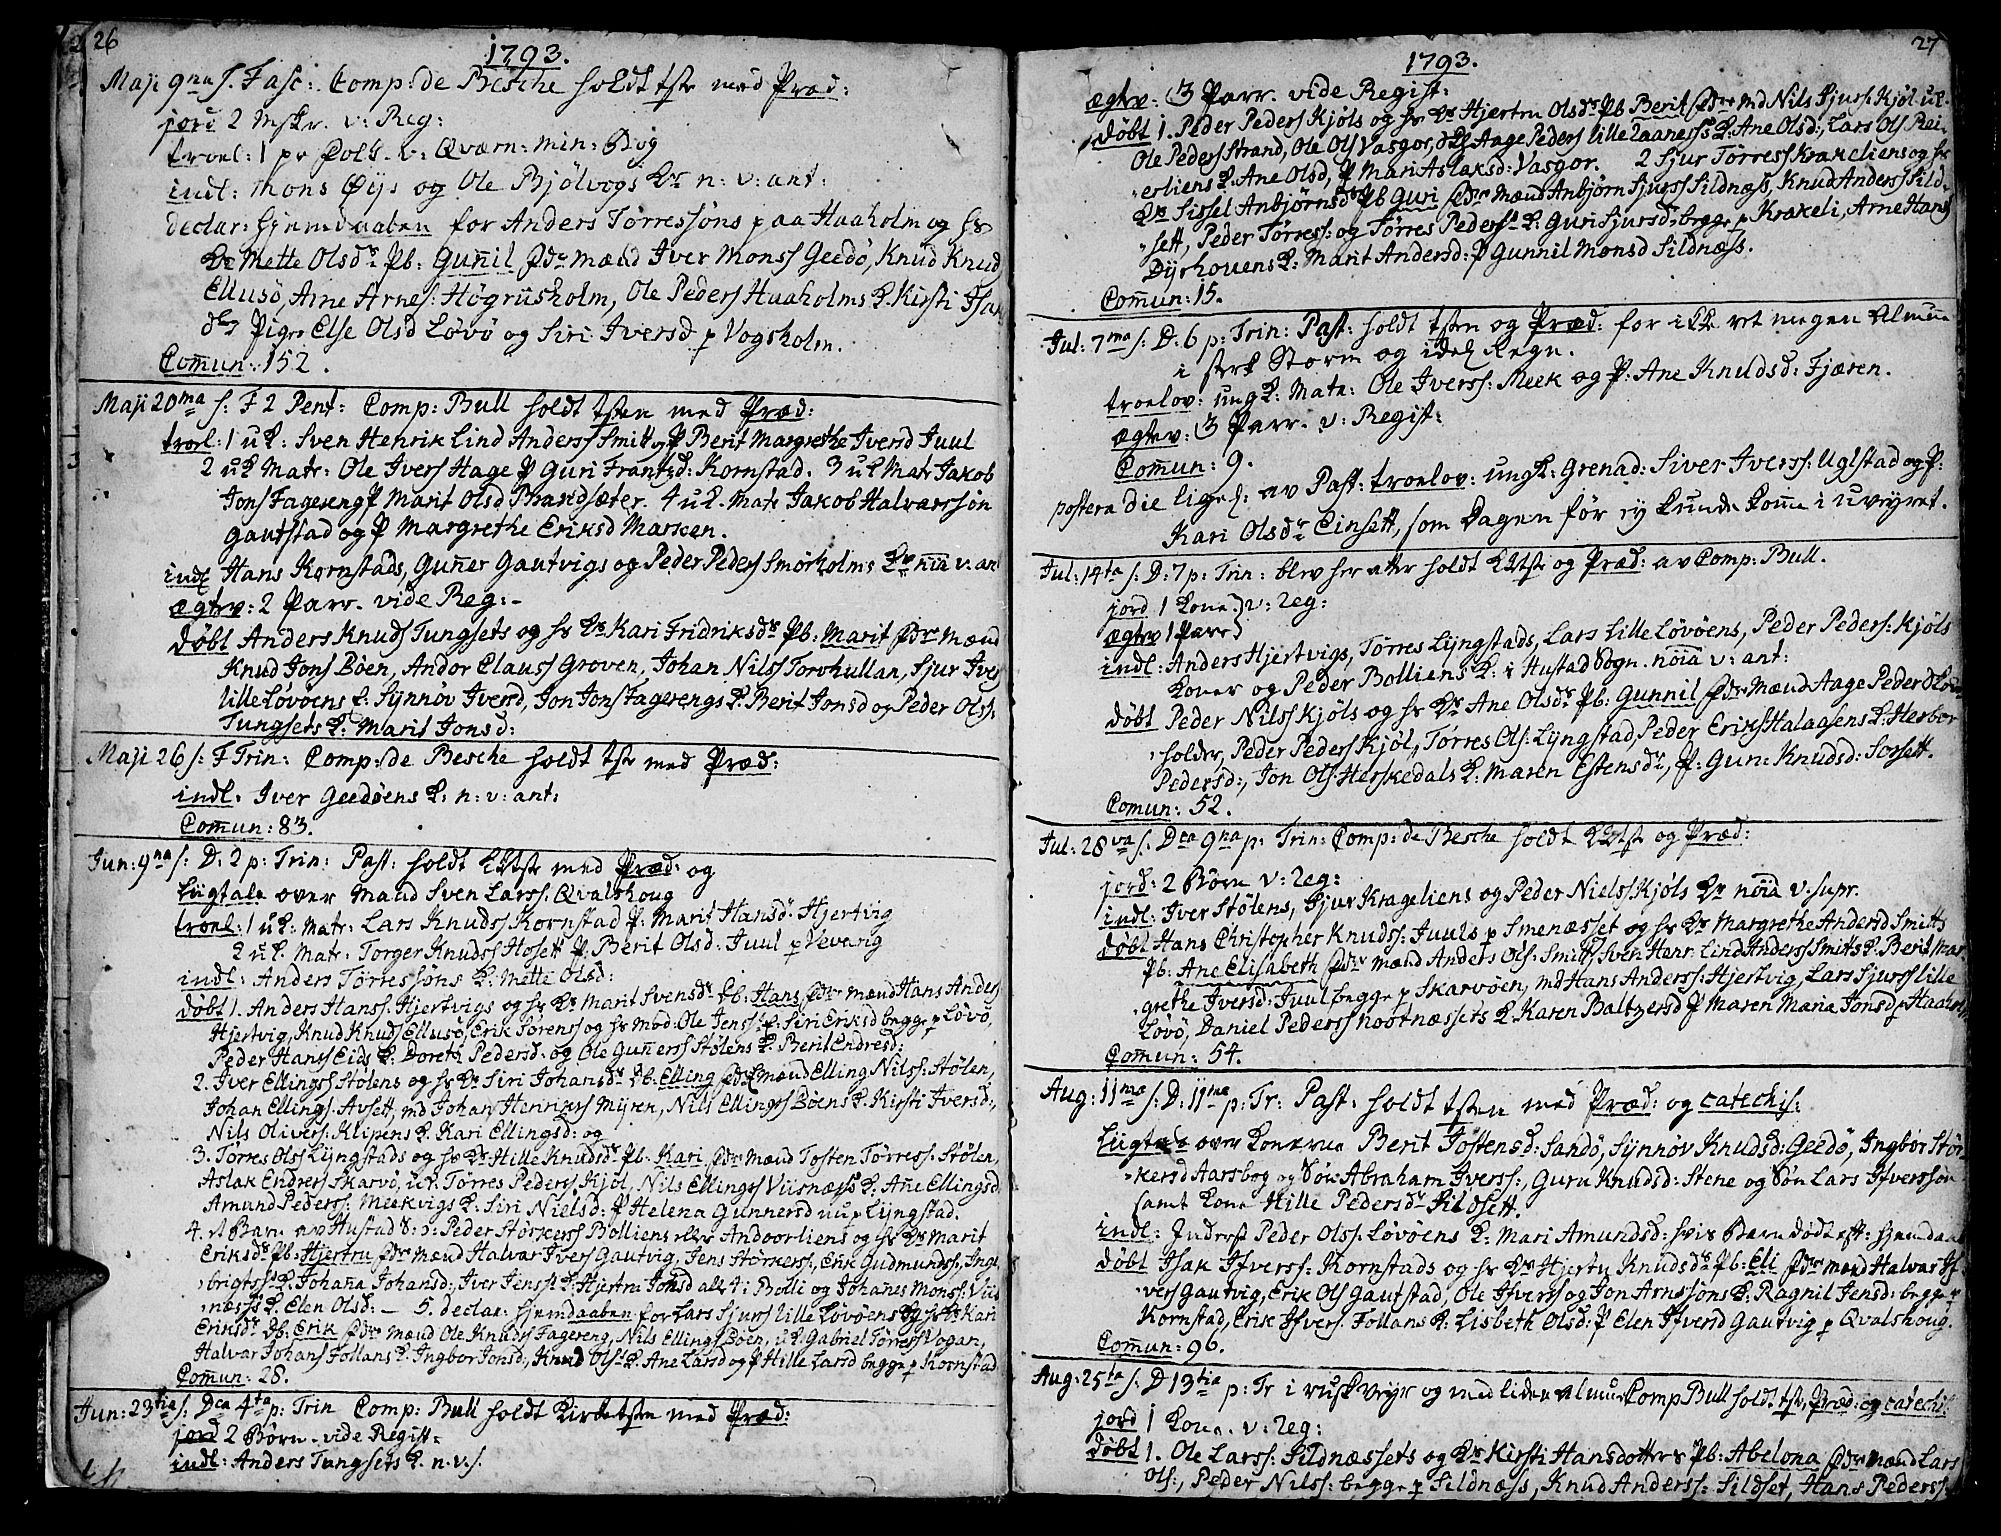 26
1793.
Maji 9na s. F asc: Comp: de Besche holdt tste med Præd:
jord 2 Mskr. v: Reg:
troel: 1 pr Pols. v: Qværn: min: Bug
indl: Mons Øijs og Ole Bjølvogs K. n: v: ant:
declar: hiemdaaben for Anders Tørressøns paa Haaholm og hs
K. Mette Olsdr Pb: Guñil fdr Mænd Iver Monss Geedø, Knud Knud
Ellusø, Arne Arnes: Høgriisholm, Ole Peders Haaholms K. Kirsti Isak
dr Piger Else Olsd Løvø og Siri Iversd p Vogsholm.
Com̄un: 152.
Maji 20ma s: F 2 Pent: Comp: Bull holdt tsten med Præd:
troel: 1 uK: Sven Henrik Lind Anderss Smitt og P Berit Margrethe Iversd Juul
2 uK Matr: Ole Ivers Hage P Guri Frantsd: Kornstad. 3 uK Matr Jakob
Jons Fagereng P Marit Olsd Brandsæter. 4 uK. Matr Jakob Halvarssøn
Gautstad og P Margrethe Eriksd Marken.
indl Hans Kornstads, Guñer Gautvigs og Peder Peders Smørholms Kr nōia v: an
ægtev: 2 Parr. vide Reg:-
døbt Anders Knuds Tungsets og hs K. Kari Fridriksdr Pb: Marit fdr Mænd
Knud Jons Bøen, Andor Clauss Groven, Johan Nilss Torvhullan, Sjur Ivers
lille Løvøens K: Synnøv Iversd, Jon Jons Fagerengs K. Berit Jonsd og Peder Olss:
Tungsets K: Marit Jonsd:
Maji 26 s: F Trin: Comp: de Besche holdt tste med Præd:
indl. Iver Geedøens K: n: v: ant:
Com̄un: 83.
Jun: 9na s: D: 2 p: Trin: Past: holdt Ktste med Præd: og
Liigtale over Mand Sven Larss. Qvalshoug
troel: 1 uK: Matr: Lars Knuds Kornstad P: Marit Hansd. Hjertvig
2 uK. Matr: Torger Knudss Hosett P: Berit Olsd: Juul p Vevang
indl: Anders Tørressøns K: Mette Olsd:
døbt 1. Anders Hanss: Hjertvigs og hs K. Marit Svensdr Pb: Hans fdr Mænd Hans Anders
Hjertvig, Knud Knuds Ellusø, Erik Torenss og hs Mod. Ole Jenss: K. Siri Eriksd begge p Løvø,
Peder Hanss Eids K. Doreth Pedersd: og Ole Guñerss Stølens K. Berit Endresd:
2. Iver Ellingss Stølens og hs K. Siri Johansdr Pb: Elling fdr Mænd Elling Nilss: Stølen,
Johan Ellings: Avsett, md Johan Henriks Mijren, Nils Ellings Bøens K. Kirsti Iversd:
Nils Olivers: Klipens K. Kari Ellingsd: og
3. Torres Olss Lijngstads og hs K. Hille Knudsdr Pb: Kari fdr Mænd Tosten Tørress: Stølen,
Aslak Endres Skarvø, uK. Tørres Peders Kjøl, Nils Ellings Viisnæss K: Añe Ellingsd
Amund Peders: Meekvigs K: Siri Nielsd: P Helena Gunnersd uu p Lijngstad.
4. et Barn av Hustad S: ɔ: Peder Størkers Bolliens eller Andoorliens og hs K. Marit
Eriksdr Pb: Hjertru fdr Mænd Halvar Ivers Gautvig, Jens Størkers:, Erik Gudmundss:, Inge
-brigtss K: Johaña Johansd:, Iver Jenss: K: Hjertru Jonsd alle 4 i Bolli og Johañes Monss: Viis
-næss K. Elen Olsd: - 5. declar: hjemdaaben for Lars Sjurs lille Løvøens og hs K. Kari
Eriksdr Pb: Erik fdr Mænd Ole Knuds Fagereng, Nils Ellings Bøen, uK. Gabriel Tørress Vogan,
Halvar Johans Follans K. Ingbor Jonsd:, Knud Olss K. Ane Larsd og P Hille Larsd begge p Kornstad
Com̄un: 28.
Jun: 23tia s: Dca 4ta p: Trin Comp: Bull holdt Kirketsten med Præd:
jord 2 Børn. vide Regist:
indl: Anders Tungsets K. n. v. s.
27
1793.
ægtev: 3 Parr. vide Regist:
døbt 1. Peder Peders Kjøls og hs K. Hjertru Olsdr Pb Berit fdr Md Nils Sjurs: Kjøl. uK.
Ole Peders Strand, Ole Ols Vasgor, Aage Peders lille Laaness K: Ane Olsd:, Lars Ols Rei-
-erliens K. Ane Olsd, P Mari Aslaksd: Vasgor. 2 Sjur Tørress Krakeliens og hs
K. Sissel Anbjørnsdr Pb Guri fdr Mænd Anbjørn Sjurss Sildnæss, Knud Anderss Sild-
-sett, Peder Tørress: og Tørres Peders: K: Guri Sjursd: begge p Krakeli, Arne Hans
Dijrhouens K: Marit Andersd: P Gunnil Monsd Sildnæss.
Com̄un: 15.
Jul: 7ma s: D: 6 p: Trin: Past: holdt tsten og Præd: for ikke ret megen Almue
i sterk Storm og idel Regn.
troelov: ung K: Matr: Ole Iverss: Meek og P: Ane Knudsd: Fjæren.
ægtev: 3 Parr. v: Regist:
Com̄un: 9.
postera die liges: av Past: troelov: ung K: Grenad: Siver Iverss: Uglstad og P:
Kari Olsdr Einsett, som Dagen før ej kunde kom̄e i uvejret.
Jul: 14ta s: D: 7 p: Trin: blev her atter holdt Ktste og Præd: av Comp: Bull.
jord 1 Kone } v: Reg:
ægtev 1 Parr
indl: Anders Hjertvigs, Tørres Lijngstads, Lars lille Løvøens, Peder Peders: Kjøls
Koner og Peder Bolliens K: i Hustad Sogn. nōia v: ant:
døbt Peder Nilss Kjøls og hs K. Ane Olsdr Pb: Gunnil fdr Mænd Aage Peders
-holdr, Peder Peders Kjøl, Torres Ols: Lijngstad, Peder Eriks Halaasens K. Herbor
Pedersd:, Jon Ols: Herskedals K: Maren Estensdr, P: Gun: Knudsd: Sorsett.
Comun: 52.
Jul: 28va s: Dca 9na p: Trin: Comp: de Besche holdt Ktste og Præd:
jord: 2 Børn v: Reg:
indl: Iver Stølens, Sjur Krageliens og Peder Nielss Kjøls K. nōia v: supr.
døbt Hans Christopher Knudss: Juuls p Smenæsset og hs K. Margrethe Andersd Smitts
Pb: Ane Elisabeth fdr Mænd Anders Ols: Smitt, Sven Hanr: Lind Anderss Smitts K. Berit Mar-
-grethe Iversd: Juul begge p Skarvøen, md Hans Anderss: Hjertvig, Lars Sjurs lille
Løvø, Daniel Peders Noornæssets K. Karen Baltzersd P Maren Maria Jonsd p Haahol
Com̄un: 54.
Aug: 11ma s: D: 11ma p: Tr: Past: holdt tsten med Præd: og catechis:
Liigtale over Konerna Berit Jostensd: Sandø, Sijnnøv Knudsd: Geedø, Ingbor Stør-
-kersd Aarsbog og Søn Abraham Iverss:, Guru Knudsd: Stene og Søn Lars Iversson
samt Kone Hille Pedersdr Sildsett.
indl: Inderst Peder Olss: Løvøens K: Mari Amundsd: hvis Barn døde eft: hjemdaab
døbt Isak Iverss: Kornstads og hs K. Hjertru Knudsdr Pb: Eli fdr Mænd Halvar If-
-vers Gautvig, Erik Ols Gautstad, Ole Ifvers og Jon Arnessøns K: Ragnil Jensd: begge p
Kornstad, Erik Ifvers: Follans K: Lisbeth Olsd: P Elen Ifversd Gautvig p Qvalshoug.
Com̄un: 96.
Aug: 25ta s: D 13tia p: Tr i rusk Vejr og med liden Almue Comp Bull holdt tste, Præd: og catechis:
jord 1 Kone. v: Reg:
døbt 1. Ole Larss: Sildnæssets og K. Kirsti Hansdotters Pb: Abelona fdr Mænd Lars
Ols:, Peder Nilss: begge p Sildnæss, Knud Anderss: Sildset, Hans Pederss: